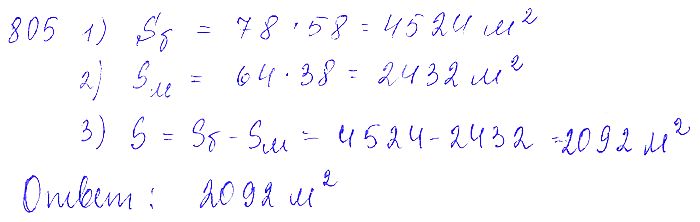 805 1) Sб = 78 · 58 = 4524 м²
2) Sм = 64 · 38 = 2432 м²
3) S = Sб - Sм = 4524 - 2432 = 2092 м²
Ответ: 2092 м²